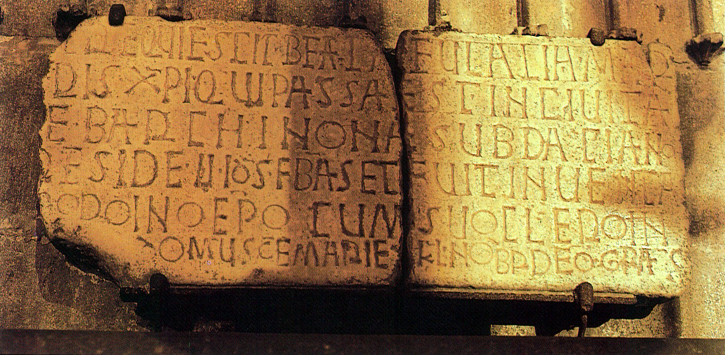 REQUIESCIT BEA EULALIA M
RIS XPI QUI PASSA EST IN CIUITA
E BARCHINONA SUB DACIANO
RESIDE II IDS FBAS ET FUIT INUENTA
ODOINO EPO CUM SUO CLERO IN
DOMUS SCE MARIE KL NOBR DEO GRAS